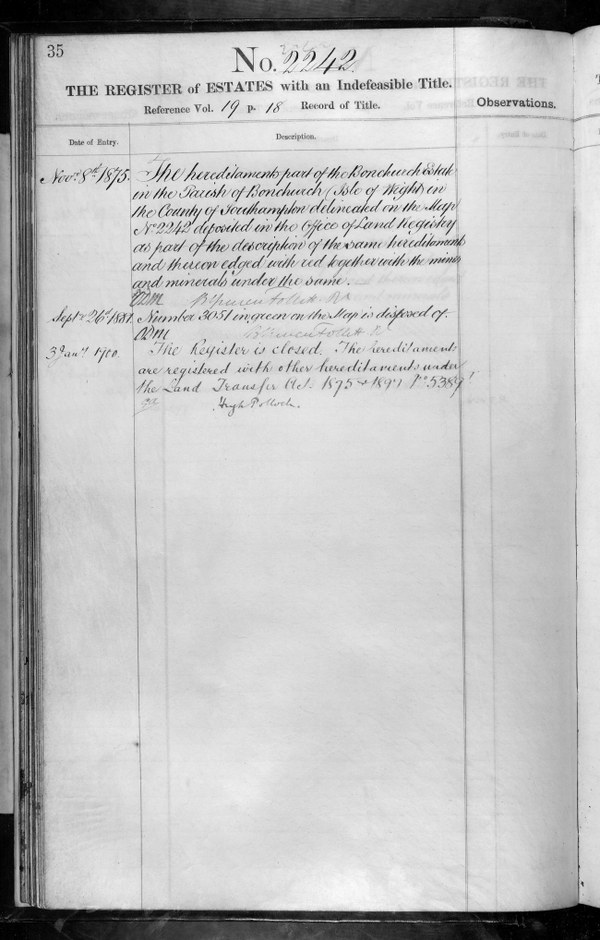 35
No. 2242.
THE REGISTER of ESTATES with an Indefeasible Title.
Reference Vol. 19 p. 18 Record of Title.
Observations.
Date of Entry.
Description.
Novr. 8th 1875. The hereditaments part of the Bonchurch Estate
in the Parish of Bonchurch (Isle of Wight) in
the County of Southampton delineated on the Map
No 2242 deposited in the Office of Land Registry
as part of the description of the same hereditaments
and thereon edged with red together with the mines
and minerals under the same.
Follett
Septr 26th 1881. Number 3051 in green on the Map is disposed of.
Follett
3 Jany 1900. The Register is closed. The hereditaments
are registered with other hereditaments under
the Land Transfer Acts 1875 & 1897 No 5389
Hugh Pollock.